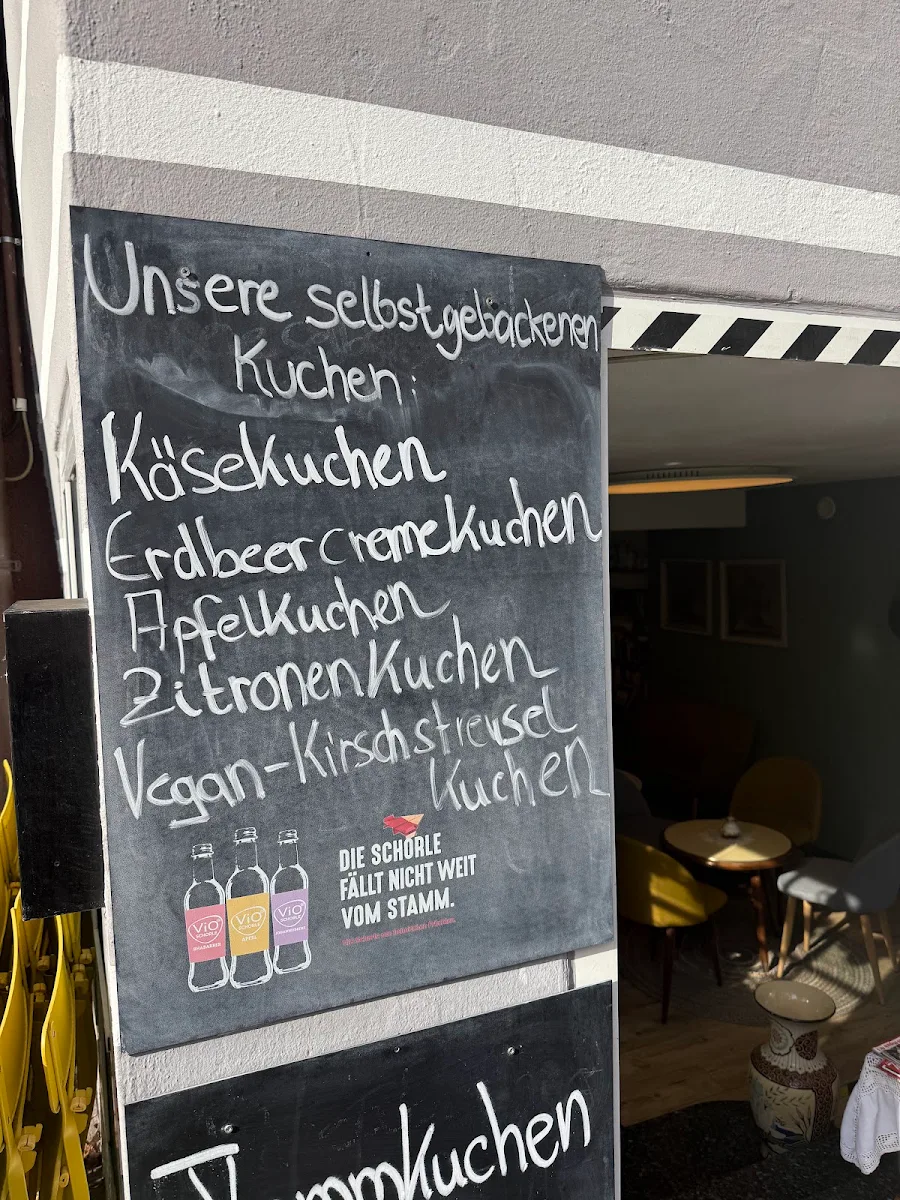 Unsere selbstgebackenen
Kuchen:
Käsekuchen
Erdbeercremekuchen
Apfelkuchen
Zitronenkuchen
Vegan-Kirschstreusel
Kuchen
DIE SCHORLE
FÄLLT NICHT WEIT
VOM STAMM.
ViO ViO ViO
SCHORLE SCHORLE SCHORLE
RHABARBER APFEL